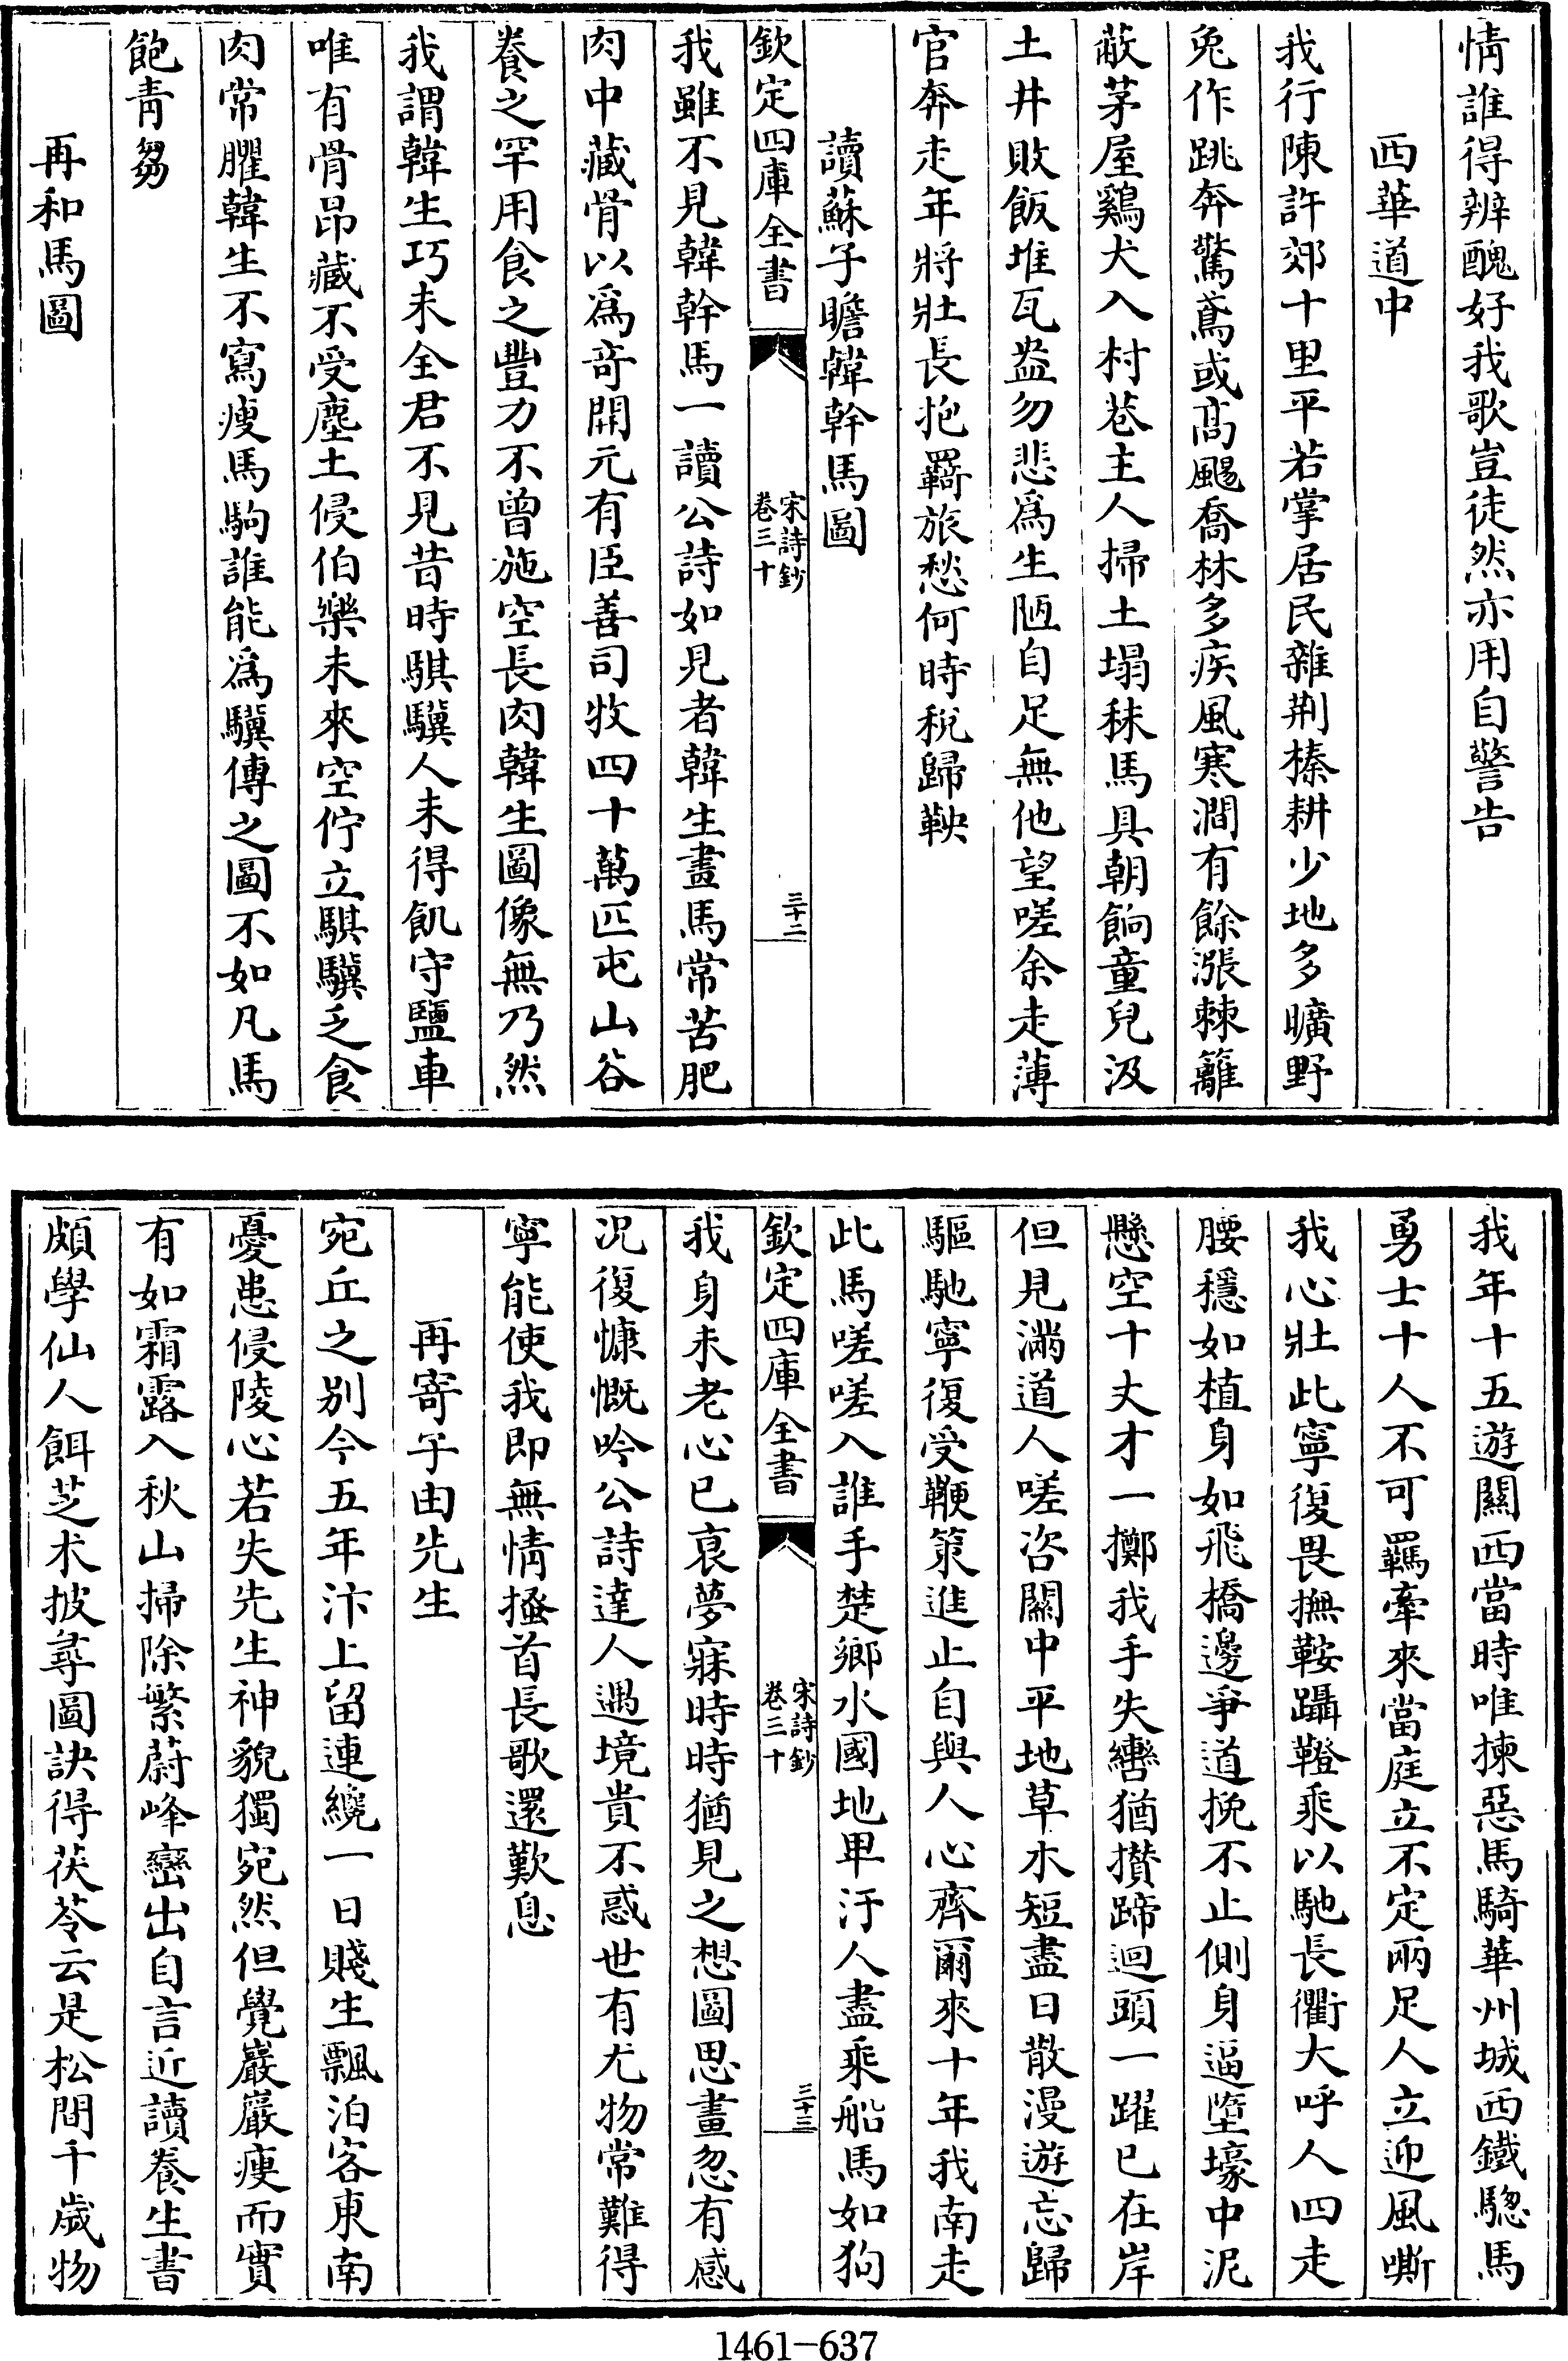 情誰得辨醜好我歌豈徒然亦用自警告
西華道中
我行陳許郊十里平若掌居民雜荆榛耕少地多曠野
兔作跳奔驚鳶或高颺喬林多疾風寒澗有餘漲棘籬
蔽茅屋鷄犬入村巷主人掃土塌秣馬具朝餉童兒汲
土井敗飯堆瓦盎勿悲爲生陋自足無他望嗟余走薄
官奔走年將壯長抱羇旅愁何時稅歸鞅
讀蘇子瞻韓幹馬圖
欽定四庫全書
宋詩鈔
卷三十
三十二
我雖不見韓幹馬一讀公詩如見者韓生畫馬常苦肥
肉中藏骨以爲奇開元有臣善司牧四十萬匹屯山谷
養之罕用食之豐力不曾施空長肉韓生圖像無乃然
我謂韓生巧未全君不見昔時騏驥人未得飢守鹽車
唯有骨昂藏不受塵土侵伯樂未來空佇立騏驥乏食
肉常臞韓生不寫瘦馬駒誰能爲驥傳之圖不如凡馬
飽青芻
再和馬圖
我年十五遊關西當時唯揀惡馬騎華州城西鐵驄馬
勇士十人不可羈牽來當庭立不定兩足人立迎風嘶
我心壯此寧復畏撫鞍躡鐙乘以馳長衢大呼人四走
腰穩如植身如飛橋邊爭道挽不止側身逼墮壕中泥
懸空十丈才一擲我手失轡猶攢蹄迴頭一躍已在岸
但見滿道人嗟咨關中平地草木短盡日散漫遊忘歸
驅馳寧復受鞭策進止自與人心齊爾來十年我南走
此馬嗟嗟入誰手楚鄉水國地卑汙人盡乘船馬如狗
欽定四庫全書
宋詩鈔
卷三十
三十三
我身未老心已哀夢寐時時猶見之想圖思畫忽有感
况復慷慨吟公詩達人遇境貴不惑世有尤物常難得
寧能使我即無情搔首長歌還歎息
再寄子由先生
宛丘之别今五年汴上留連纔一日賤生飄泊客東南
憂患侵陵心若失先生神貌獨宛然但覺巖巖瘦而實
有如霜露入秋山掃除繁蔚峰巒出自言近讀養生書
頗學仙人餌芝术披尋圖訣得茯苓云是松間千歲物
1461-637